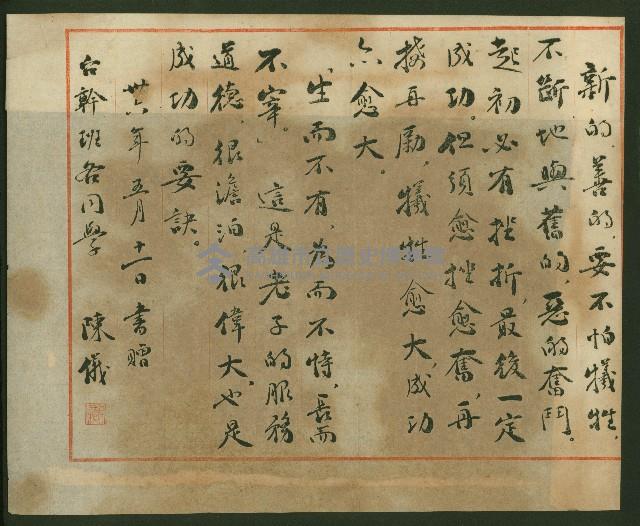 新的，善的，要不怕犧牲，
不斷地與舊的，惡的奮鬥。
起初必有挫折，最後一定
成功。但須愈挫愈奮，再
接再厲，犧牲愈大，成功
亦愈大。
「生而不有，為而不恃，長而
不宰。」這是老子的服務
道德，很澹泊很偉大，也是
成功的要訣。
卅六年五月十一日書贈
台幹班各同學 陳儀
高雄市立歷史博物館